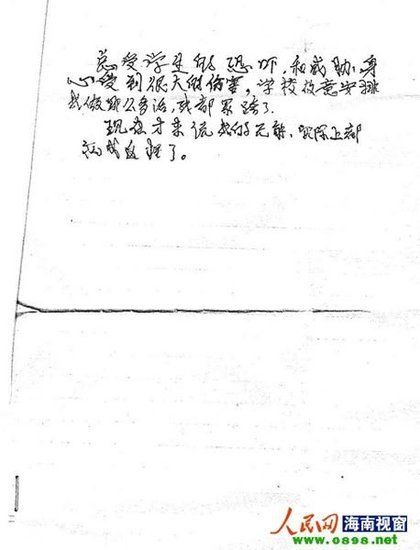 总受学生的恐吓,和威胁,身
心受到很大的伤害,学校故意安排
我做那么多活,我都累跨了。
现在才来说我的无能,实际上都
把我逼
了。
人民网 海南视窗
www.0898.net